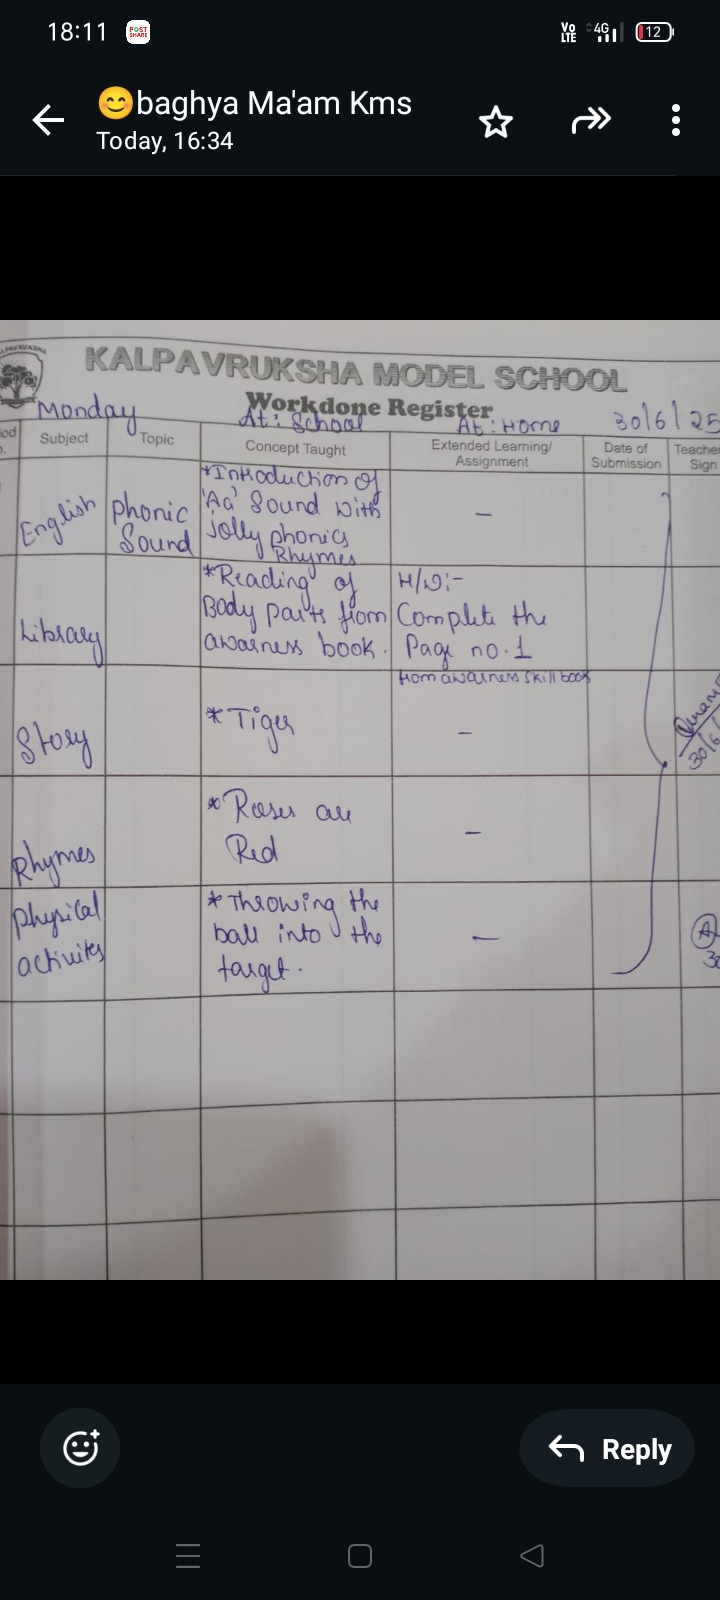 18:11
POST SHARE
Vo LTE 4G 12
😊baghya Ma'am Kms
Today, 16:34
KALPAVRUKSHA
KALPAVRUKSHA MODEL SCHOOL
Workdone Register
Monday At: School At: Home 30/6/25
Subject Topic Concept Taught Extended Learning/ Assignment Date of Submission Teacher Sign
English
phonic
Sound
*Introduction of
'Aa' Sound with
jolly phonics
Rhymes
–
Library
*Reading of
Body parts from
awarness book.
H/W:-
Complete the
Page no.1
from awarness skill book
Story
*Tiger
–
30/6/
Rhymes
*Roses are
Red
–
Physical
activites
*Throwing the
ball into the
target.
–
A
Reply